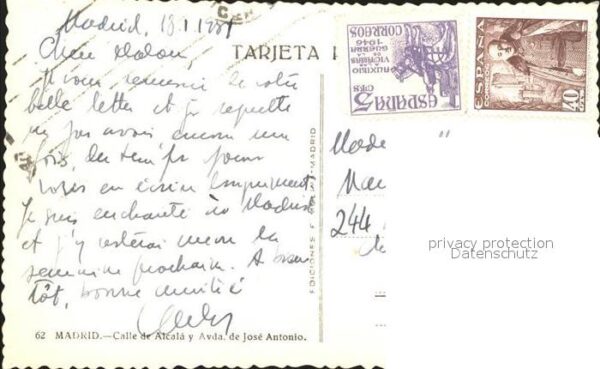 Madrid, 18.1.1951
TARJETA
Je vous remercie de votre
belle lettre et je regrette
ne pas avoir encore une
fois, du temps pour
vous en écrire longuement
Je suis enchanté de Madrid
et j'y resterai encore la
semaine prochain. A bien
tôt, bonne amitié
62 MADRID.—Calle de Alcalá y Avda. de José Antonio.
EDICIONES MADRID
CORREOS
1946
AUXILIO
A LAS
VICTIMAS
DE LA
GUERRA
5 CTS
ESPAÑA
ESPAÑA
CORREOS
40 CTS
Made "
244
privacy protection
Datenschutz